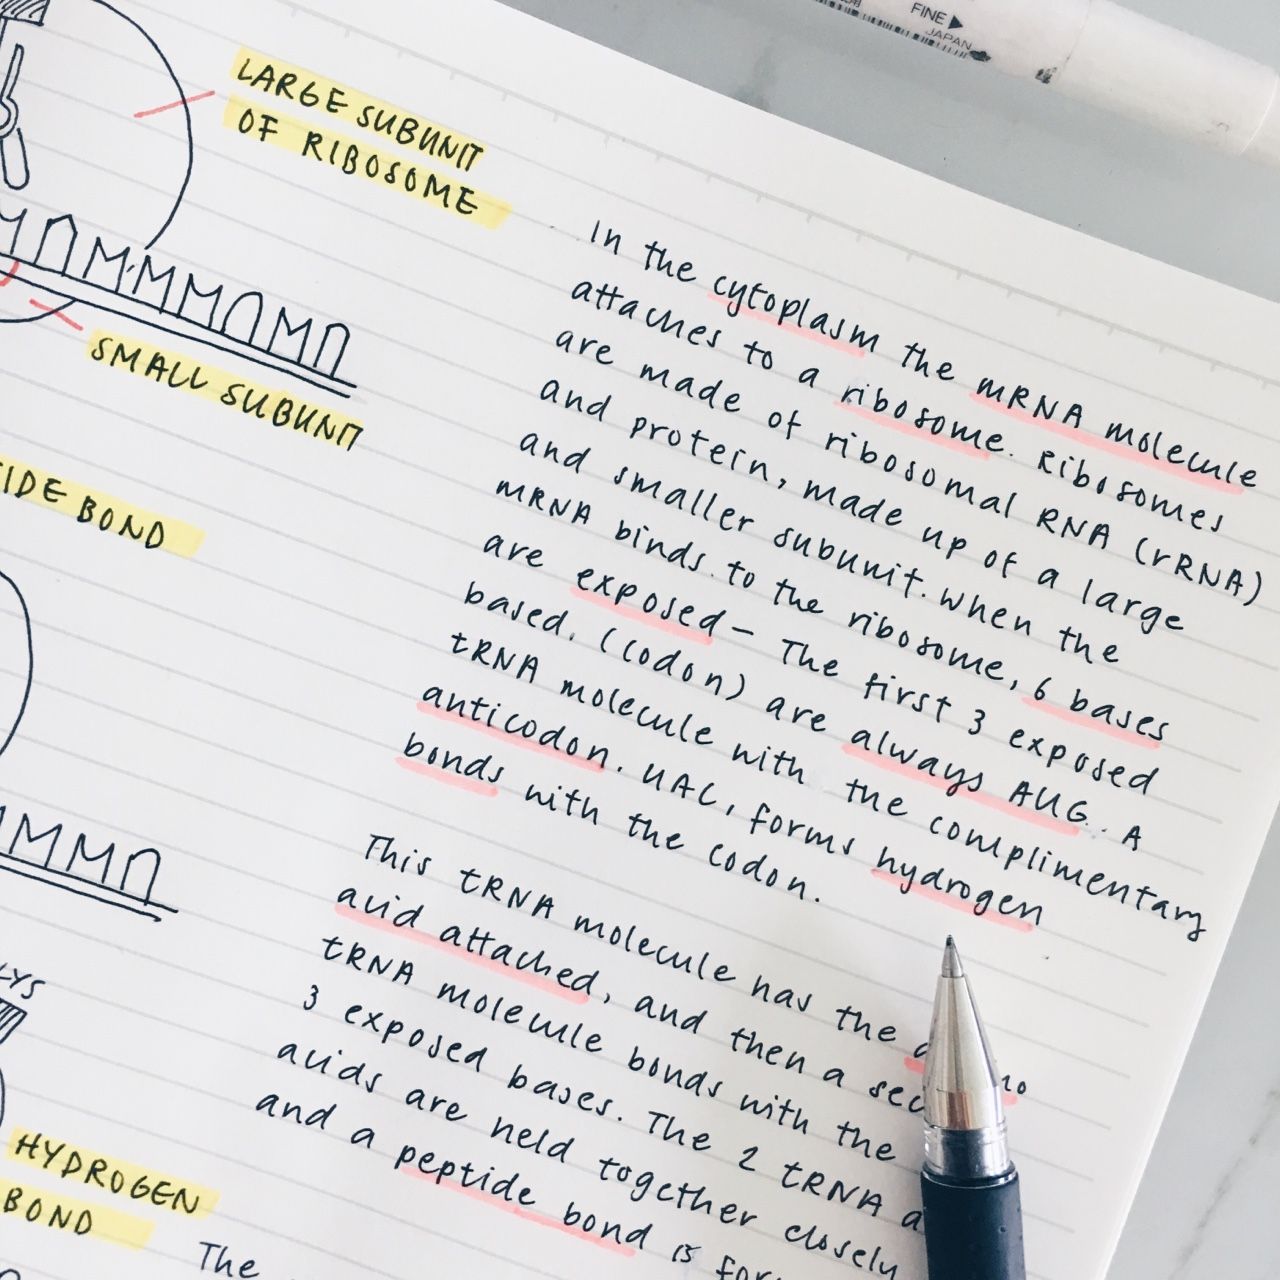 FINE
JAPAN
LARGE SUBUNIT
OF RIBOSOME
SMALL SUBUNIT
BOND
LYS
HYDROGEN
BOND
In the cytoplasm the mRNA molecule
attaches to a ribosome. Ribosomes
are made of ribosomal RNA (rRNA)
and protein, made up of a large
and smaller subunit. When the
mRNA binds to the ribosome, 6 bases
are exposed - The first 3 exposed
based. (codon) are always AUG. A
tRNA molecule with the complimentary
anticodon. UAC, forms hydrogen
bonds with the codon.
This tRNA molecule has the
acid attached, and then a
tRNA molecule bonds with the
3 exposed bases. The 2 tRNA
acids are held together closely
and a peptide bond is
The